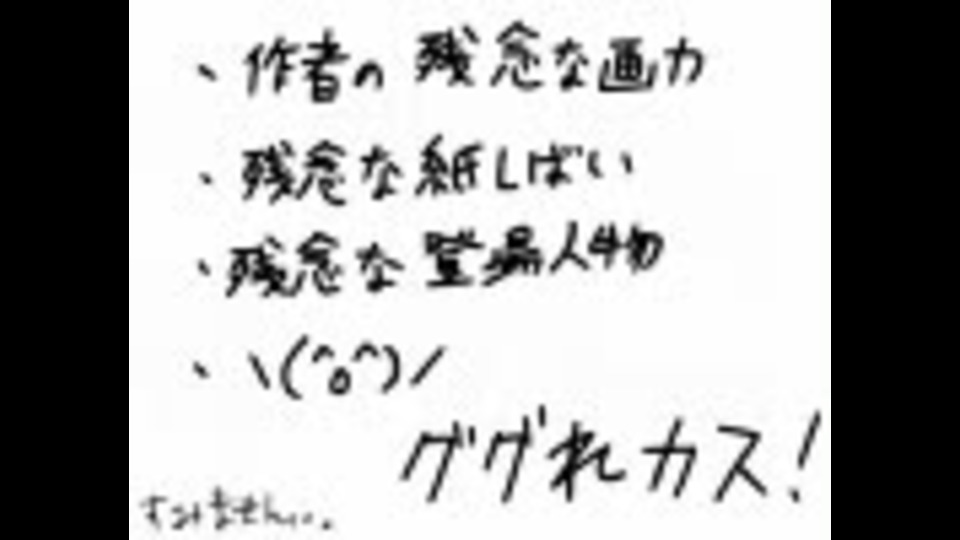 ・作者の残念な画力
・残念な紙しばい
・残念な登場人物
・\(^o^)/
ググれカス!
すみません...